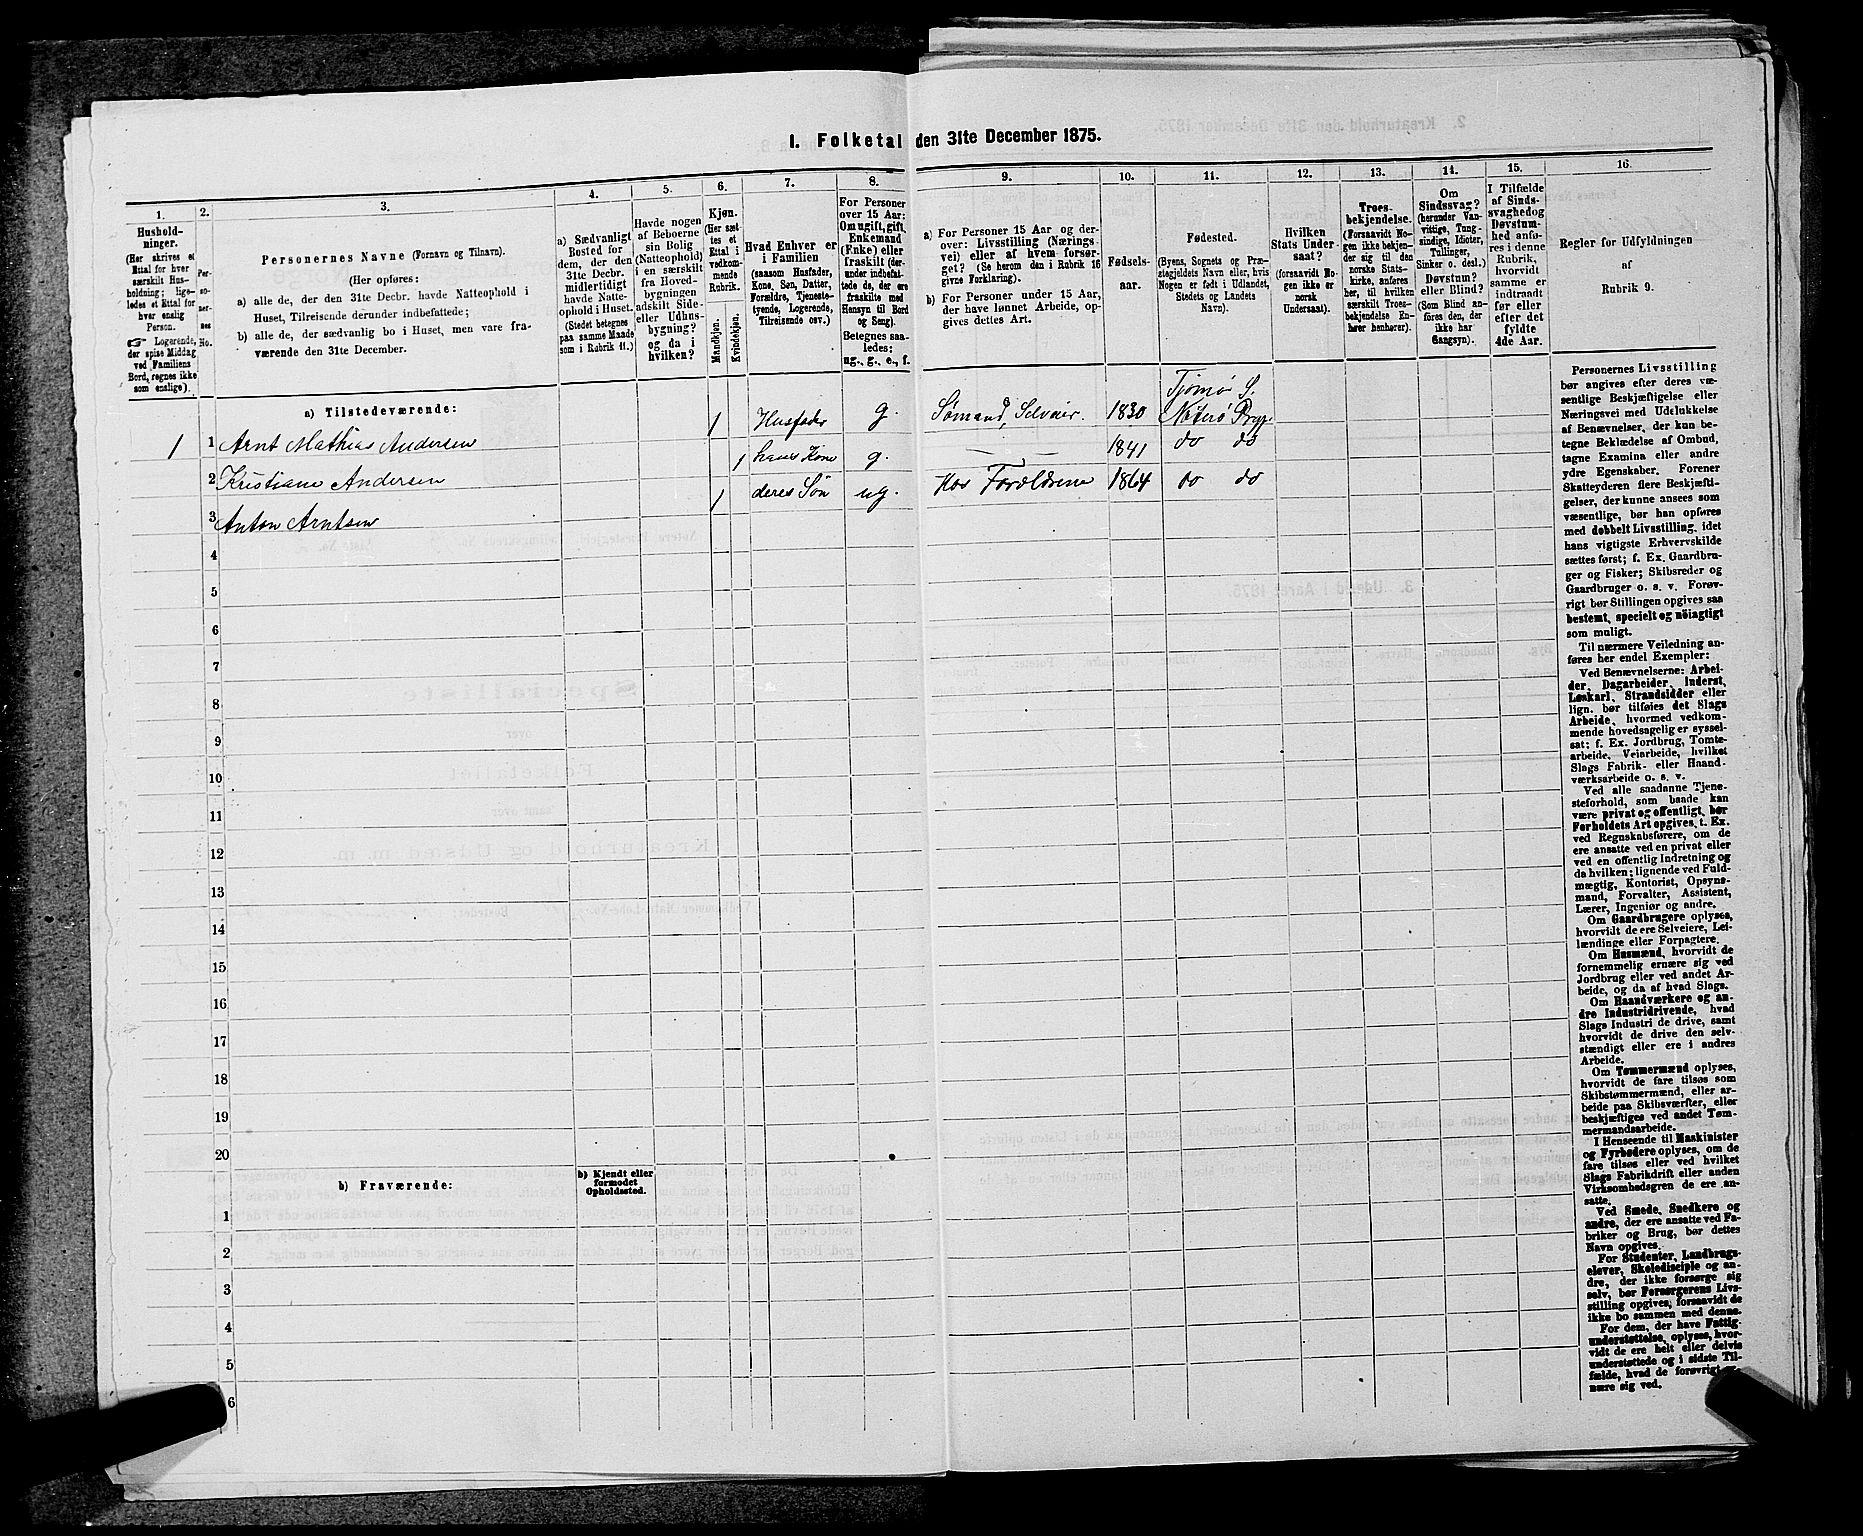 1. Folketal den 31te December 1875.
1. 2. 3. 4. 5. 6. 7. 8. 9. 10. 11. 12. 13. 14. 15. 16.
Hushold-
ninger.
(Her skrives et
Ettal for hver
særskilt Hus-
holdning; lige-
ledes et Ettal for
hver enslig
Person.
☞ Logerende,
der spise Middag
ved Familiens
Bord, regnes ikke
som enslige).
Per-
so-
ner-
nes
No.
Personernes Navne (Fornavn og Tilnavn).
(Her opføres:
a) alle de, der den 31te Decbr. havde Natteophold i
Huset, Tilreisende derunder indbefattede;
b) alle de, der sædvanlig bo i Huset, men vare fra-
værende den 31te December.
a) Sædvanligt
Bosted for
dem, der den
31te Decbr.
midlertidigt
havde Natte-
ophold i Huset.
(Stedet betegnes
paa samme Maade
som i Rubrik 11.)
Havde nogen
af Beboerne
sin Bolig
(Natteophold)
i en særskilt
fra Hoved-
bygningen
adskilt Side-
eller Udhus-
bygning?
og da i
hvilken?
Kjøn.
(Her sæt-
tes et
Ettal i
vedkom-
mende
Rubrik.
Mandkjøn.
Kvindekjøn.
Hvad Enhver er
i Familien
(saasom Husfader,
Kone, Søn, Datter,
Forældre, Tjeneste-
tyende, Logerende,
Tilreisende osv.)
For Personer
over 15 Aar:
Om ugift, gift,
Enkemand
(Enke) eller
fraskilt (der-
under indbefat-
tede de, der ere
fraskilte med
Hensyn til Bord
og Seng).
Betegnes saa-
ledes:
ug., g., e., f.
a) For Personer 15 Aar og der-
over: Livsstilling (Nærings-
vei) eller af hvem forsør-
get? (Se herom den i Rubrik 16
givne Forklaring).
b) For Personer under 15 Aar,
der have lønnet Arbeide, op-
gives dettes Art.
Fødsels-
aar.
Fødested.
(Byens, Sognets og Præ-
stegjeldets Navn eller, hvis
Nogen er født i Udlandet,
Stedets og Landets
Navn).
Hvilken
Stats Under-
saat?
(forsaavidt No-
gen ikke er
norsk
Undersaat).
Troes-
bekjendelse.
(Forsaavidt No-
gen ikke bekjen-
der sig til den
norske Stats-
kirke, anføres
her, til hvilken
særskilt Troes-
bekjendelse En-
hver henhører).
Om
Sindssvag?
(herunder Van-
vittige, Tung-
sindige, Idioter,
Tullinger,
Sinker o. desl.)
Døvstum?
eller Blind?
(Som Blind an-
føres den, der
ikke har
Gangsyn).
I Tilfælde
af Sinds-
svaghed og
Døvstum-
hed anfø-
res i denne
Rubrik,
hvorvidt
samme er
indtraadt
før eller
efter det
fyldte
4de Aar.
Regler for Udfyldningen
af
Rubrik 9.
a) Tilstedeværende:
Tjømø S.
1 1 Arnt Mathias Andersen 1 Husfader g. Sømand, Selveier. 1830 Nøterø Prgj.
2 Kristiane Andersen 1 hans Kone g. 1841 do do
3 Anton Arntsen 1 deres Søn ug. Hos Forældrene 1864 do do
4
5
6
7
8
9
10
11
12
13
14
15
16
17
18
19
20
b) Fraværende:
b) Kjendt eller
formodet
Opholdssted.
1
2
3
4
5
6
Personernes Livsstilling
bør angives efter deres væ-
sentlige Beskjæftigelse eller
Næringsvei med Udelukkelse
af Benævnelser, der kun be-
tegne Beklædelse af Ombud,
tagne Examina eller andre
ydre Egenskaber. Forener
Skatteyderen flere Beskjæfti-
gelser, der kunne ansees som
væsentlige, bør han opføres
med dobbelt Livsstilling, idet
hans vigtigste Erhvervskilde
sættes først; f. Ex. Gaardbru-
ger og Fisker; Skibsreder og
Gaardbruger o. s. v. Forøv-
rigt bør Stillingen opgives saa
bestemt, specielt og nöiagtigt
som muligt.
Til nærmere Veiledning an-
føres her endel Exempler:
Ved Benævnelserne: Arbei-
der, Dagarbeider, Inderst,
Løskarl, Strandsidder eller
lign. bør tilføies det Slags
Arbeide, hvormed vedkom-
mende hovedsagelig er syssel-
sat; f. Ex. Jordbrug, Tomte-
arbeide, Veiarbeide, hvilket
Slags Fabrik- eller Haand-
værksarbeide o. s. v.
Ved alle saadanne Tjene-
steforhold, som baade kan
være privat og offentligt, bør
Forholdets Art opgives, f. Ex.
ved Regnskabsførere, om de
ere ansatte ved en privat eller
ved en offentlig Indretning og
da hvilken; lignende ved Fuld-
mægtig, Kontorist, Opsyns-
mand, Forvalter, Assistent,
Lærer, Ingeniør og andre.
Om Gaardbrugere oplyses,
hvorvidt de ere Selveiere, Lei-
lændinge eller Forpagtere.
Om Husmænd, hvorvidt de
fornemmelig ernære sig ved
Jordbrug eller ved andet Ar-
beide, og da af hvad Slags.
Om Haandværkere og an-
dre Industridrivende, hvad
Slags Industri de drive, samt
hvorvidt de drive den selv-
stændigt eller ere i andres
Arbeide.
Om Tømmermænd oplyses,
hvorvidt de fare tilsøs som
Skibstømmermænd, eller ar-
beide paa Skibsværfter, eller
beskjæftiges ved andet Tøm-
mermandsarbeide.
I Henseende til Maskinister
og Fyrbødere oplyses, om de
fare tilsøs eller ved hvilket
Slags Fabrikdrift eller anden
Virksomhedsgren de ere an-
satte.
Ved Smede, Snedkere og
andre, der ere ansatte ved Fa-
briker og Brug, bør dettes
Navn opgives.
For Studenter, Landbrugs-
elever, Skoledisciple og an-
dre, der ikke forsørge sig
selv, bør Forsørgerens Livs-
stilling opgives, forsaavidt de
ikke bo sammen med denne.
For dem, der have Fattig-
understøttelse, oplyses, hvor-
vidt de ere helt eller delvis
understøttede og i sidste Til-
fælde, hvad de forøvrigt er-
nære sig ved.